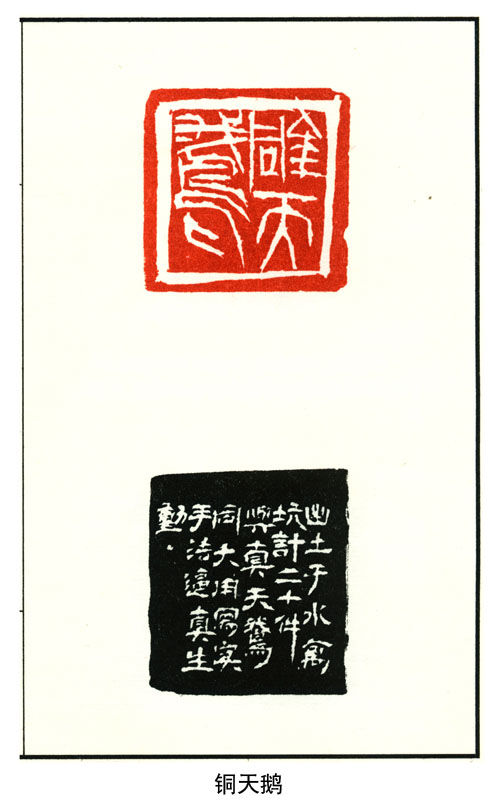 銅天
鵝
出土于水禽
坑計二十件
與真天鵝
同大用寫實
手法逼真生
動.
铜天鹅